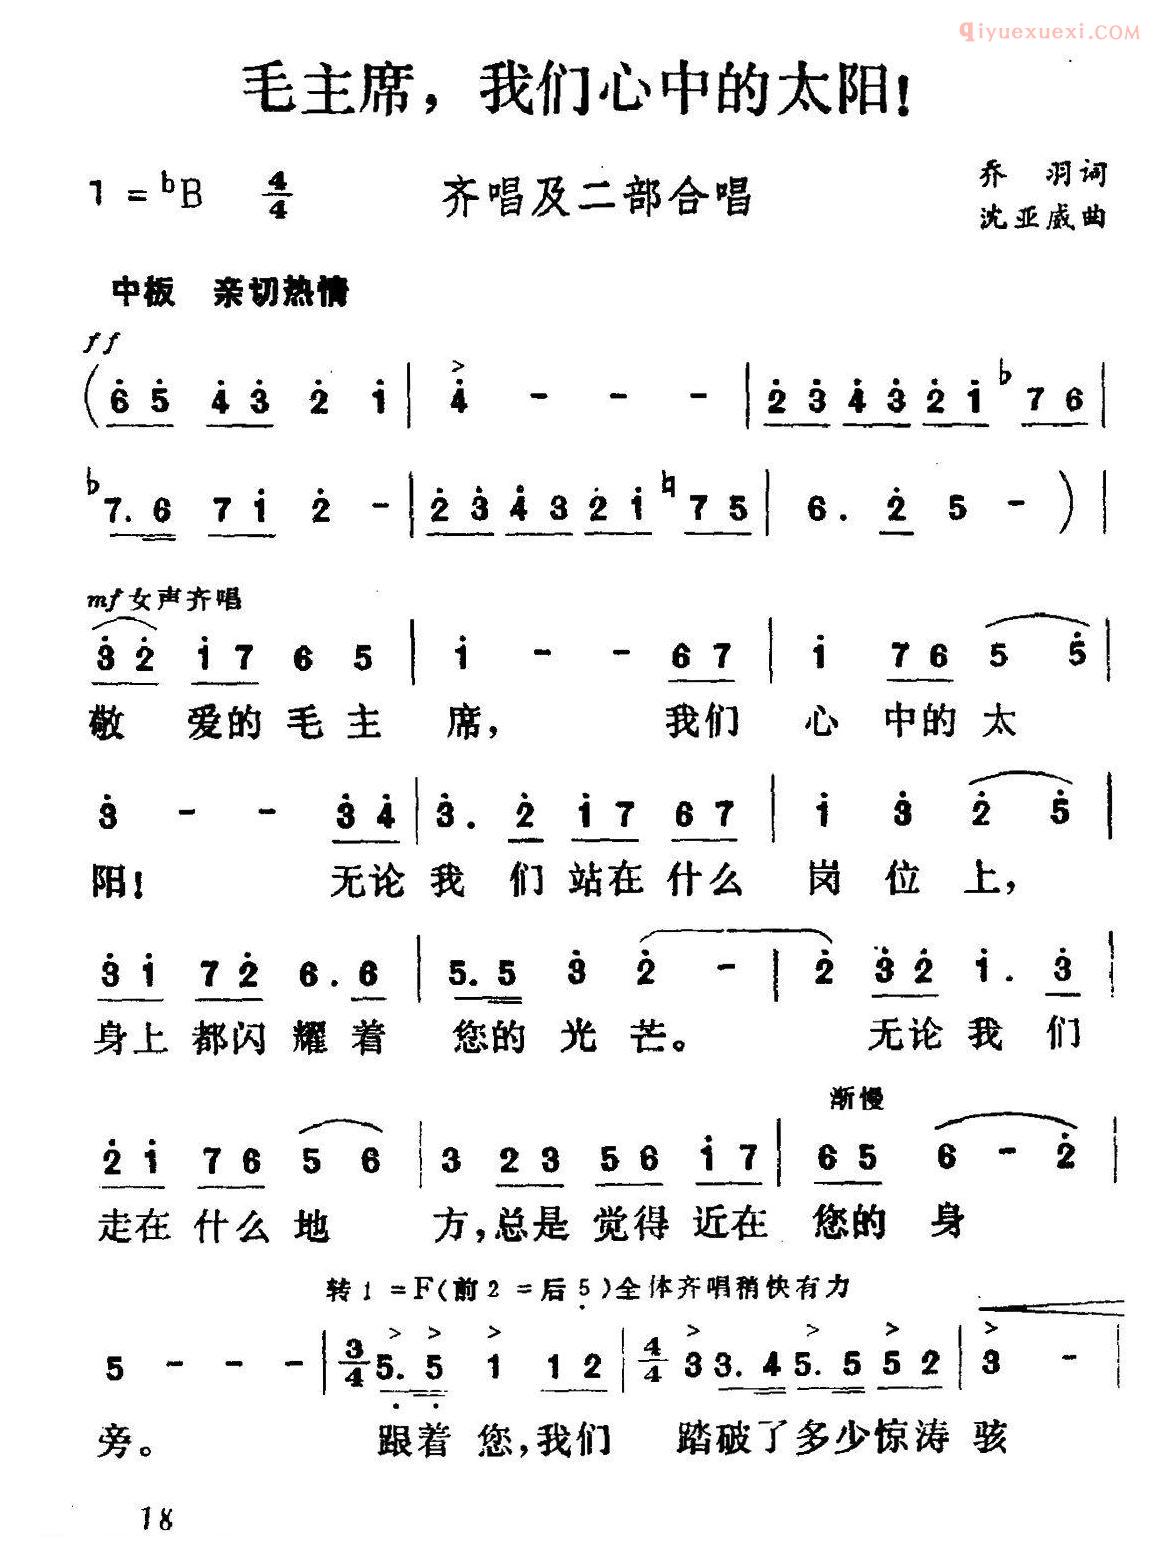 qiyuexuexi.COM
毛主席，我们心中的太阳！
1 = ᵇB 4/4 齐唱及二部合唱 乔 羽词
沈亚威曲
中板 亲切热情
ff
( 6̇ 5̇ 4̇ 3̇ 2̇ 1̇ | 4̇ - - - | 2̇ 3̇ 4̇ 3̇ 2̇ 1̇ ♭7 6 |
♭7. 6 7 1̇ 2̇ - | 2̇ 3̇ 4̇ 3̇ 2̇ 1̇ ♮7 5 | 6. 2̇ 5 - ) |
mf 女声齐唱
3̇ 2̇ 1̇ 7 6 5 | 1̇ - - 6 7 | 1̇ 7 6 5 5̇ |
敬 爱的 毛 主 席， 我们 心 中的 太
3̇ - - 3̇ 4̇ | 3̇. 2̇ 1̇ 7 6 7 | 1̇ 3̇ 2̇ 5̇ |
阳！ 无论 我 们 站在 什么 岗 位 上，
3̇ 1̇ 7 2̇ 6. 6 | 5. 5 3̇ 2̇ - | 2̇ 3̇ 2̇ 1̇. 3̇ |
身上 都闪 耀 着 您的 光 芒。 无论 我 们
渐慢
2̇ 1̇ 7 6 5 6 | 3 2 3 5 6 1̇ 7 | 6 5 6 - 2̇ |
走在 什么 地 方，总是 觉得 近在 您的 身
转 1 = F(前 2 = 后 5̣)全体齐唱稍快有力
5 - - - | 3/4 5̣. 5̣ 1 1 2 | 4/4 3 3. 4 5. 5 5 2 | 3 - |
旁。 跟着 您，我们 踏破了多少惊涛 骇
18